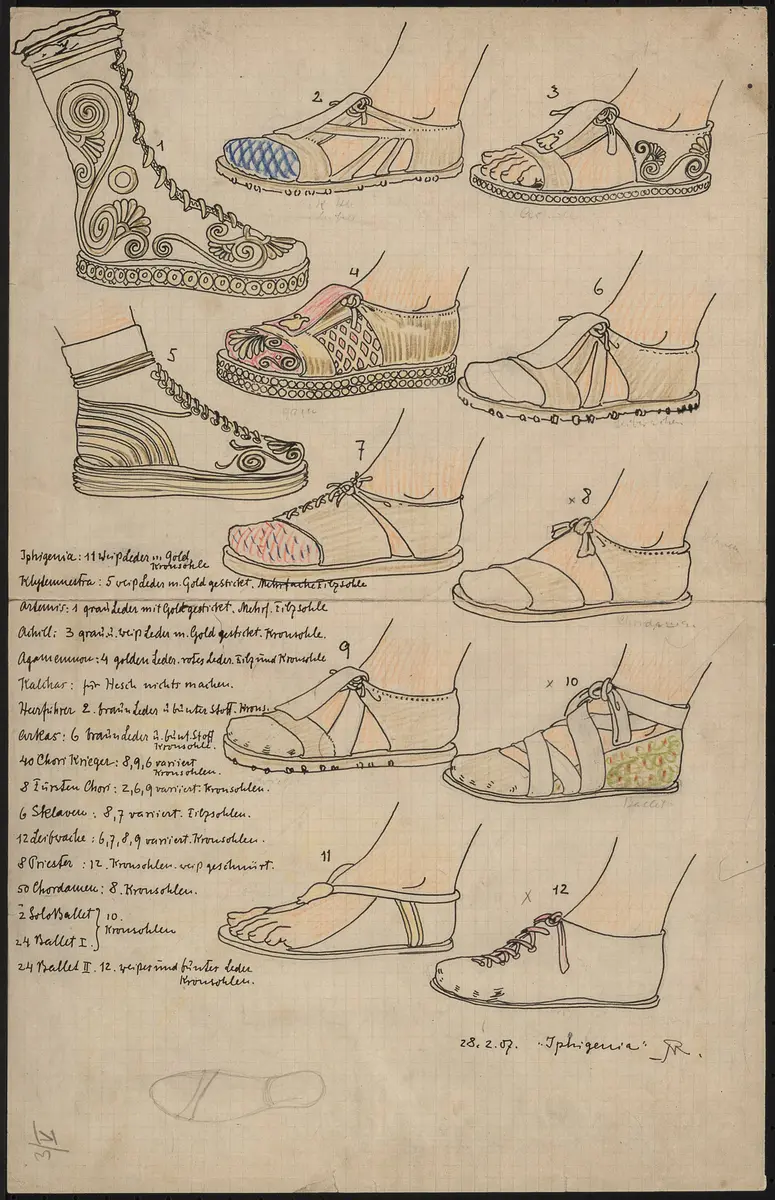 1
2
3
4
5
6
7
× 8
9
× 10
11
× 12
Iphigenia: 11 Weißleder m. Gold,
Kronsohle
Klytemnestra: 5 weißleder m. Gold gestickt. Mehrfache Filzsohle
Artemis: 1 grau Leder mit Gold gestickt. Mehrf. Filzsohle
Achill: 3 grau u. weiß Leder m. Gold gestickt. Kronsohle.
Agamemnon: 4 golden Leder. rotes Leder. Filz und Kronsohle
Kalchas: für Hesch nichts machen.
Heerführer 2. braun Leder u bunter Stoff. Krons.
Arkas: 6 braunleder u. bunt. Stoff
Kronsohle.
40 Chor: Krieger: 8,9,6 variiert
Kronsohlen.
8 Fürsten Chor: 2,6,9 variiert. Kronsohlen.
6 Sklaven: 8,7 variiert. Filzsohlen.
12 Leibwache: 6,7,8,9 variiert. Kronsohlen.
8 Priester: 12. Kronsohlen. weiß geschnürt.
50 Chordamen: 8. Kronsohlen.
2 Solo Ballet } 10.
24 Ballet I. Kronsohlen
24 Ballet II. 12. weißes und buntes Leder
Kronsohlen.
Ballet
28.2.07. "Iphigenia" AR.
3/V